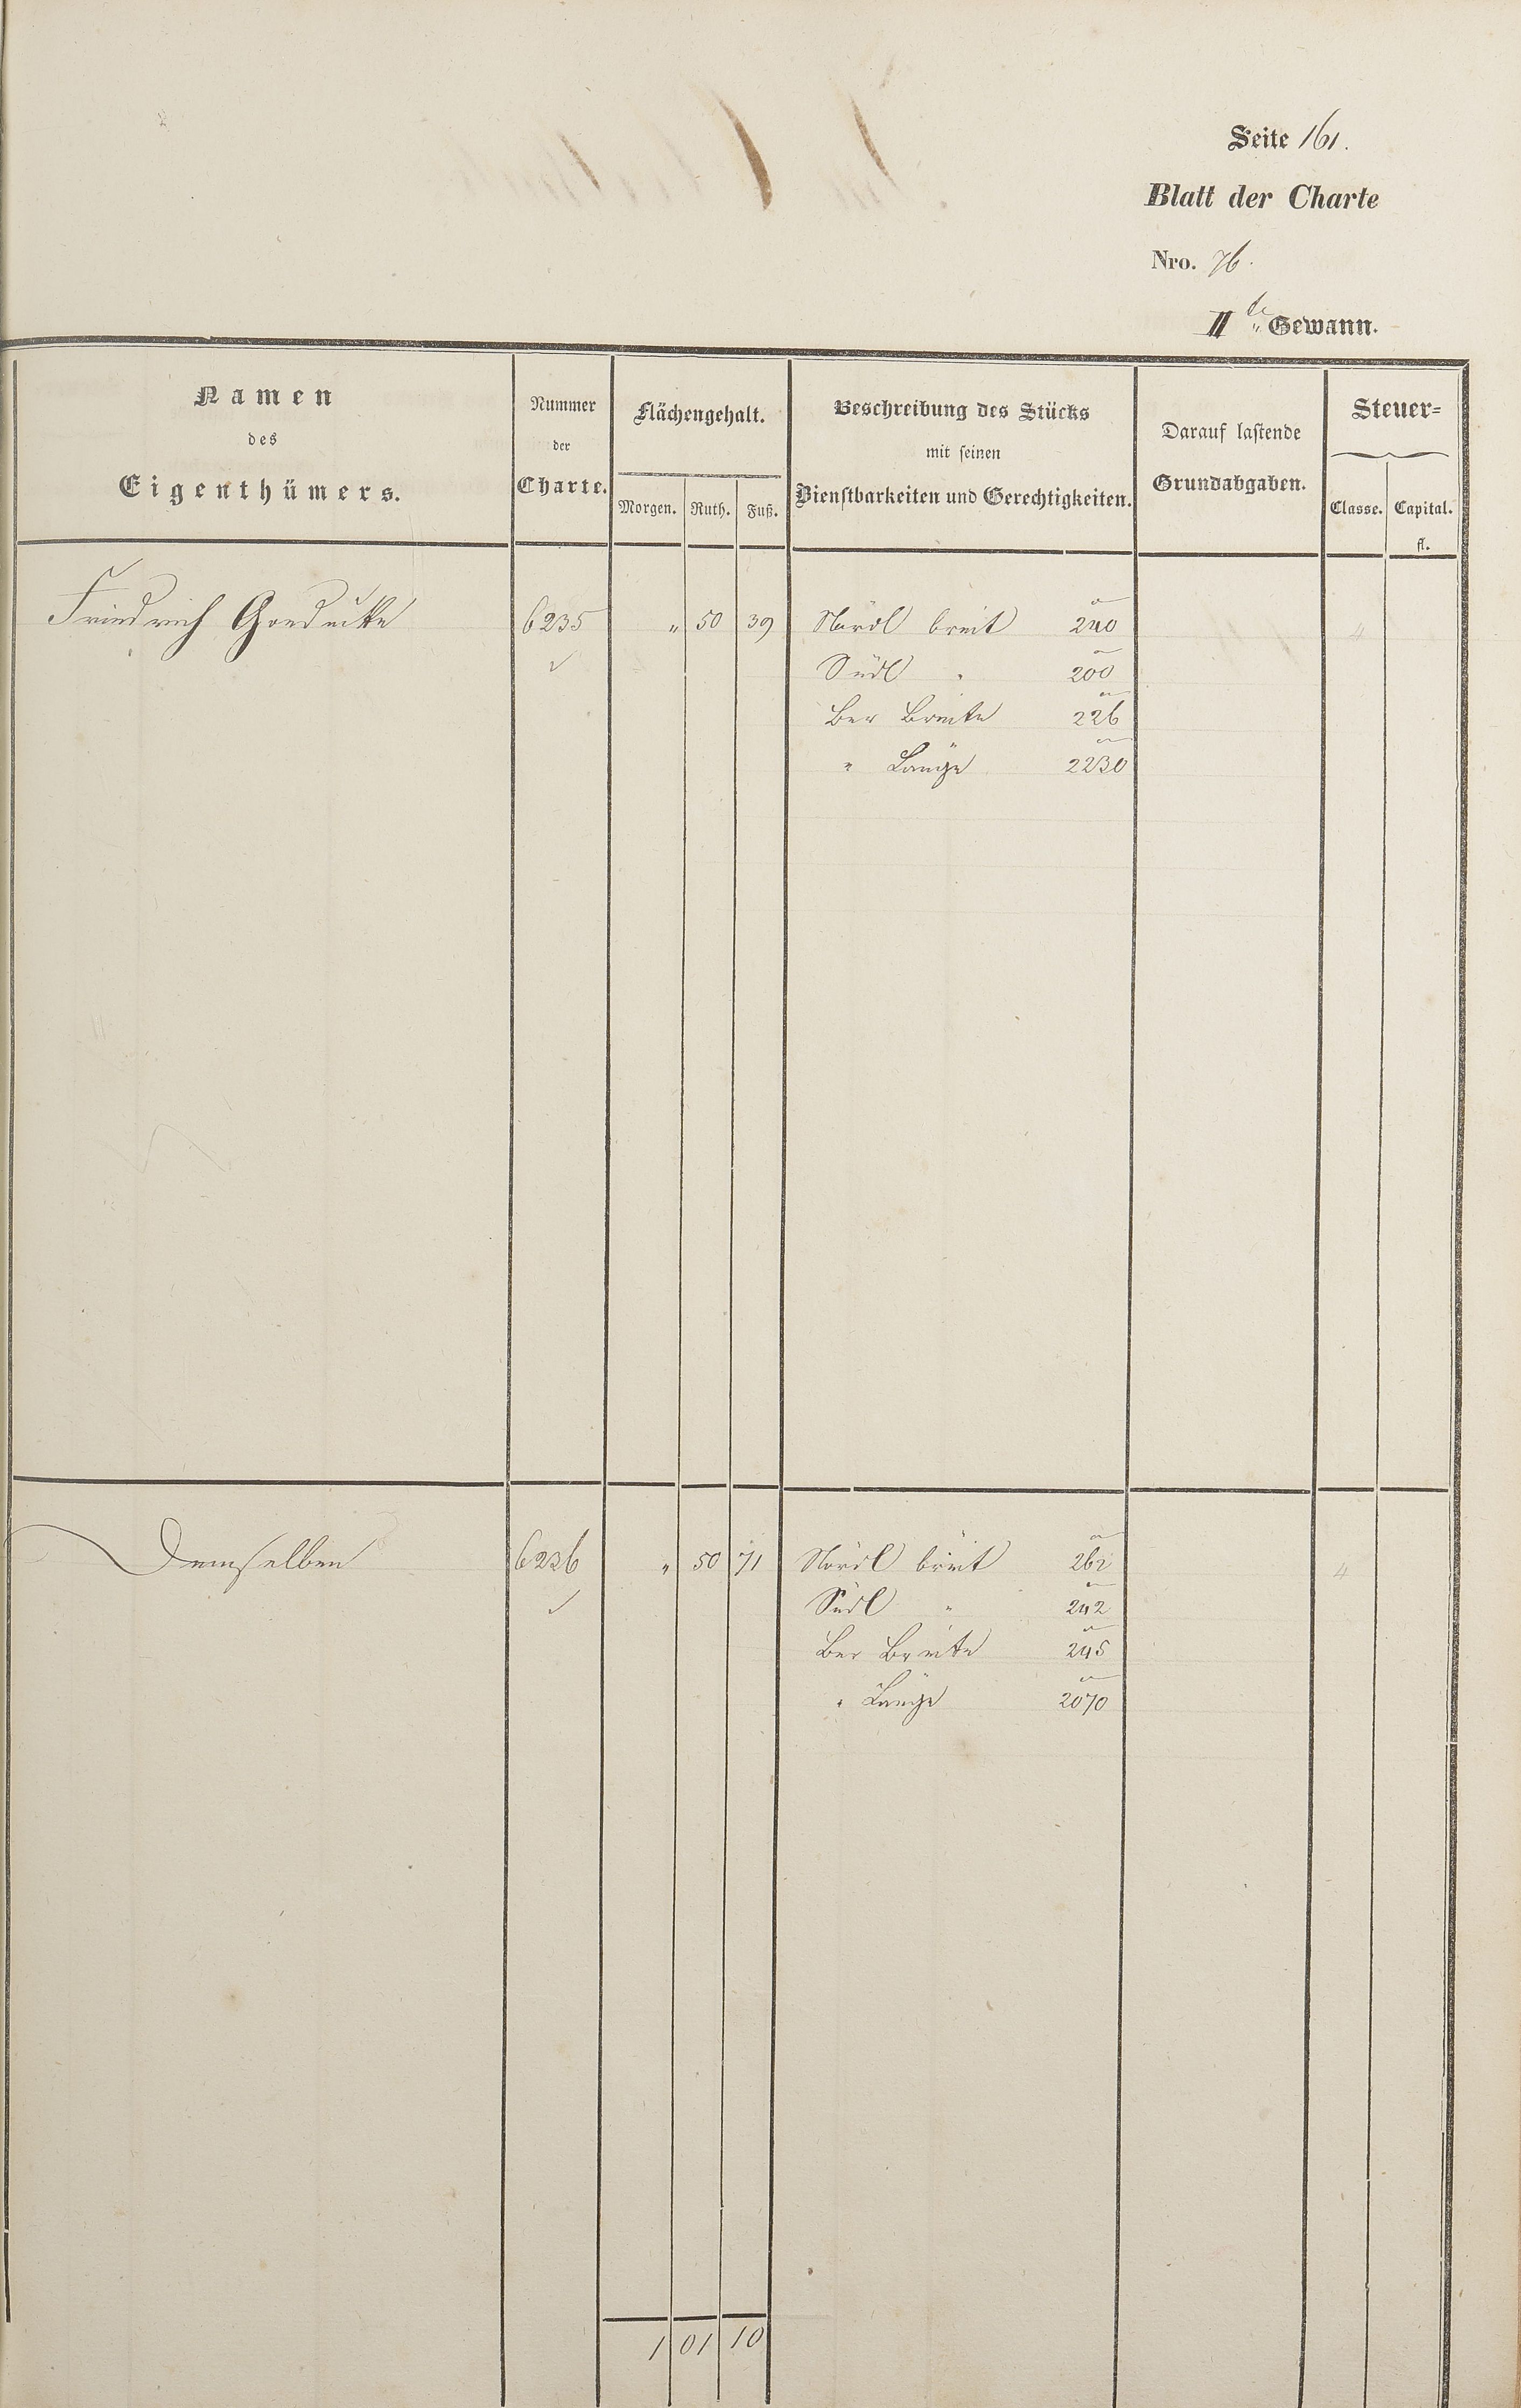 Seite 161.
Blatt der Charte
Nro. 76.
II te Gewann.
Namen
des
Eigenthümers.
Nummer
der
Charte.
Flächengehalt.
Morgen. Ruth. Fuß.
Beschreibung des Stücks
mit seinen
Dienstbarkeiten und Gerechtigkeiten.
Darauf lastende
Grundabgaben.
Steuer=
Classe. Capital.
fl.
Friedrich Goedecke 6235 " 50 39 Nördl breit 240 4
✓ Südl " 200
Ber Breite 226
" Länge 2230
Demselben 6236 " 50 71 Nördl breit 262 4
✓ Südl " 242
Ber Breite 245
" Länge 2070
1 01 10